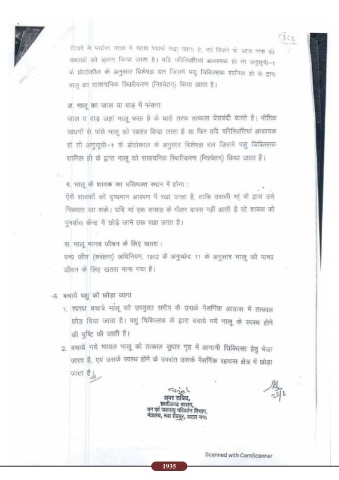 पिंजरे में पर्याप्त मात्रा में खाद्य पदार्थ रखा जाता है, एवं पिंजरे के अंदर जाने की
भालू का इंतजार किया जाता है। यदि परिस्थितियां आवश्यक हो तो अनुसूची-1
के प्रोटोकॉल के अनुसार विशेषज्ञ दल जिसमें पशु चिकित्सक शामिल हो के द्वारा
भालू का रासायनिक स्थिरीकरण (निश्चेतन) किया जाता है।
अ. भालू का जाल या बाड़ में फंसना
जाल व बाड़ जहां भालू फंसा है के चारों तरफ तत्काल घेराबंदी करते हैं। भौतिक
साधनों से फंसे भालू को स्वतंत्र किया जाता है या फिर यदि परिस्थितियां आवश्यक
हो तो अनुसूची-1 के प्रोटोकॉल के अनुसार विशेषज्ञ दल जिसमें पशु चिकित्सक
शामिल हो के द्वारा भालू को रासायनिक स्थिरीकरण (निश्चेतन) किया जाता है।
ब. भालू के शावक का परित्यक्त स्थान में होना :
ऐसे शावकों को दृश्यमान आवरण में रखा जाता है, ताकि उसकी माँ भी द्वारा उसे
निकाला जा सके। यदि मां एक सप्ताह के भीतर वापस नहीं आती है तो शावक को
पुनर्वास केन्द्र में छोड़े जाने तक रखा जाता है।
स. भालू मानव जीवन के लिए खतरा :
वन्य जीव (संरक्षण) अधिनियम, 1972 के अनुच्छेद 11 के अनुसार भालू को मानव
जीवन के लिए खतरा माना गया है।
-5. बचाये पशु को छोड़ा जाना
1. स्वस्थ बचाये भालू को उपयुक्त समीप के उसके नैसर्गिक आवास में तत्काल
छोड़ दिया जाता है। पशु चिकित्सक के द्वारा बचाये गये भालू के स्वस्थ होने
की पुष्टि की जाती है।
2. बचाये गये घायल भालू को तत्काल सुधार गृह में आगामी चिकित्सा हेतु भेजा
जाता है, एवं उसके स्वस्थ होने के उपरांत उसके नैसर्गिक रहवास क्षेत्र में छोड़ा
जाता है।
अवर सचिव,
छत्तीसगढ़ शासन,
वन एवं जलवायु परिवर्तन विभाग,
मंत्रालय, नवा रायपुर, अटल नगर
Scanned with CamScanner
1935